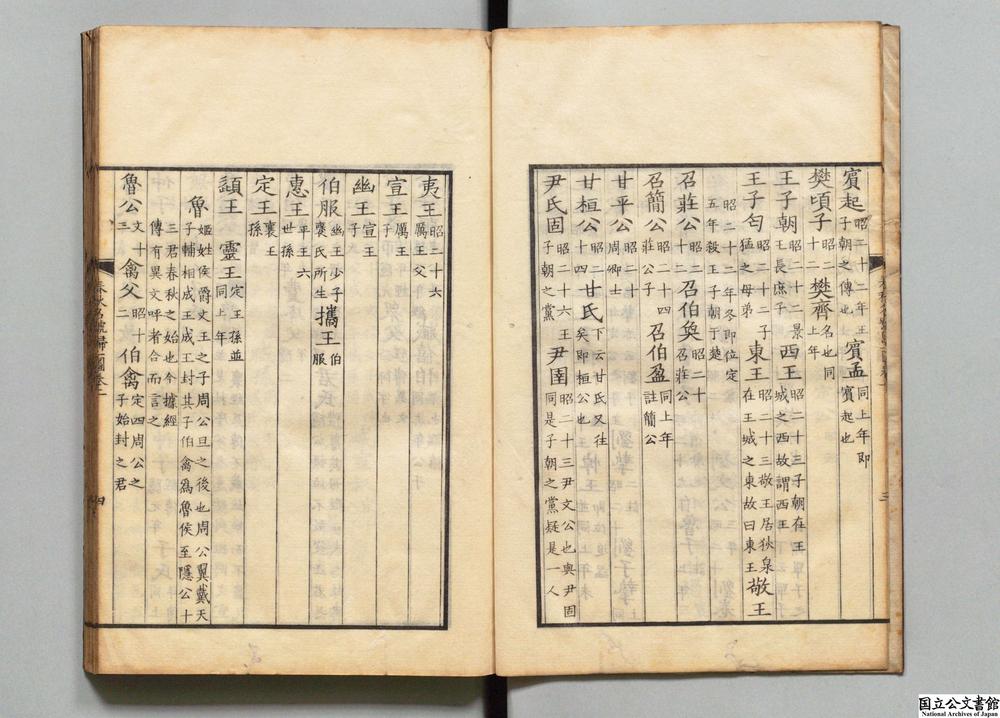 賓起 昭二十二年王子朝之傳也 賓孟 同上年即賓起也
樊頃子 昭二十二 樊齊 名也同上年
王子朝 昭二十二景王長庶子 西王 昭二十三子朝在王城之西故謂西王
王子匄 昭二十二子猛之母弟 東王 昭二十三敬王居狄泉在王城之東故曰東王 敬王
昭二十二年冬即位定五年殺王子朝于楚
召莊公 昭二十二 召伯奐 昭二十召莊公
召簡公 昭二十四莊公子 召伯盈 同上年註簡公
甘平公 昭二十年周卿士
甘桓公 昭二十四 甘氏 下云甘氏又往矣即桓公也
尹氏固 昭二十六王子朝之黨 尹圉 昭二十三尹文公也與尹固同是子朝之黨疑是一人
夷王 昭二十六厲王父
宣王 厲王子
幽王 宣王子
伯服 幽王少子褒氏所生 攜王 伯服
惠王 平王六世孫
定王 襄王孫
頴王 靈王 定王孫並同上年
魯 姬姓侯爵文王之子周公旦之後也周公翼戴天子輔相成王成王封其子伯禽爲魯侯至隱公十
三君春秋之始也今據經傳有異文呼者合而言之
魯公 文十三 禽父 昭十二 伯禽 定四周公之子始封之君
春秋名號歸一圖卷上 四
国立公文書館
National Archives of Japan